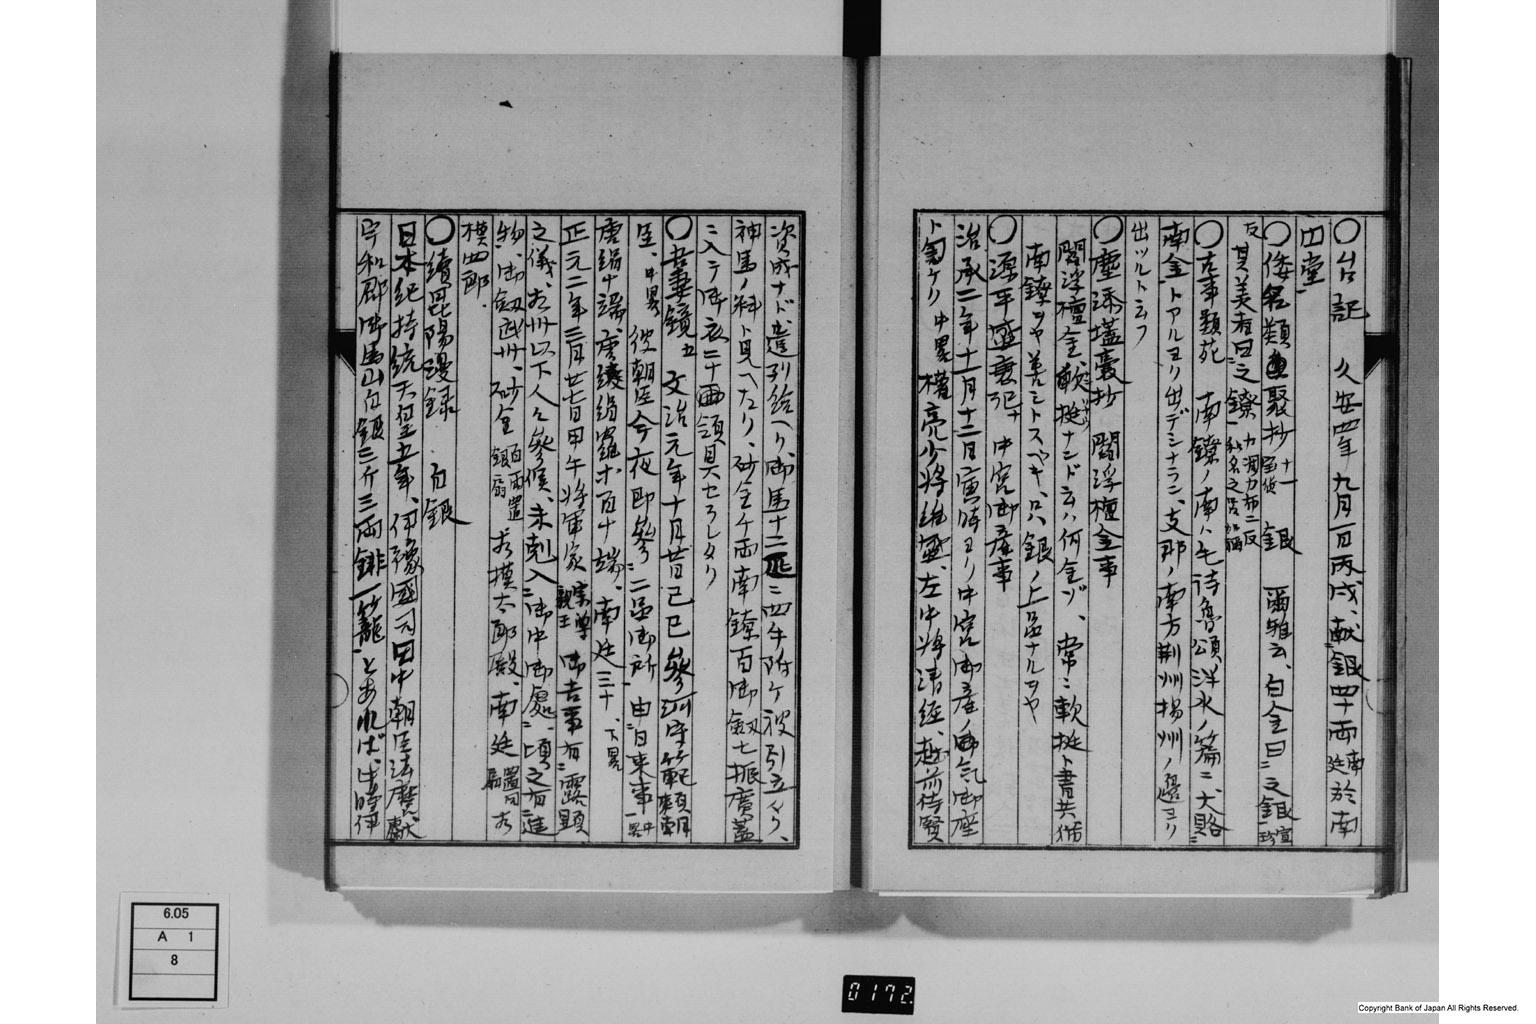 〇台記　久安四年九月一日丙戌、献銀四十両南廷於南
円堂
〇倭名類聚抄十一　銀　爾雅云、白金曰之銀宜珍
反其美者曰之鐐力凋力弔二反
〇古事類苑　南鐐ノ南ハ毛詩魯頌泮水ノ篇ニ、大賂
南金トアルヨリ出デシナラン、支那ノ南方荆州揚州ノ邊ヨリ
出ツルトモフ
〇塵添壒囊抄　閻浮檀金事
閻浮檀金、軟挺ナンド云ハ何金ゾ、常ニ軟挺ト書共
南鐐ヲヤ善シトスベキ、只銀ノ上品ナルヲヤ
〇源平盛衰記十　中宮御産事
治承二年十一月十二日寅時ヨリ中宮御産ノ御気御座
トケリ中畧權亮少将維盛、左中将清経、越前侍賢
資成ナド遣例給ヘリ、御馬十二匹ニ四手附ケ被引立タリ、
神馬ノ料ト見ヘタリ、砂金千両南鐐百御釼七振廣蓋
ニ入テ御衣二十両領具セラレタリ
〇吾妻鏡五　文治元年十月廿日己巳參河守範頼朝
臣、中畧彼朝臣今夜即參二品御所、申日来事中畧
唐絹十端、唐綾絹羅等百十端、南廷三十、下畧
正元二年三月廿七日甲午将軍家宗尊親王御吉事有露顕
之儀、相州以下人々參候、未剋入御中御處、頃之有進
物、御釼武州、砂金銀扇　相摸太郎殿、南廷
摸四郎、
〇續昆陽漫録　白銀
日本紀持統天皇五年、伊豫國司田中朝臣法麿献
宇和郡御馬山白銀三斤三両鉚一籠とあれば、此時伊
6.05
A 1
8
0172.
Copyright Bank of Japan All Rights Reserved.